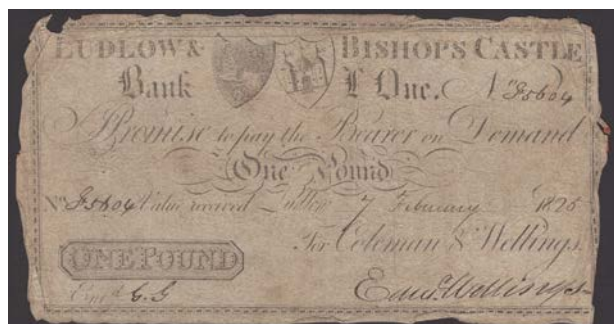 LUDLOW & BISHOPS CASTLE
Bank £ One. No g5604
I Promise to pay the Bearer on Demand
One Pound
No. g5604 Value received Ludlow 7 February 1825
For Coleman & Wellings.
ONE POUND
Entd. G.G Edwd. Wellings